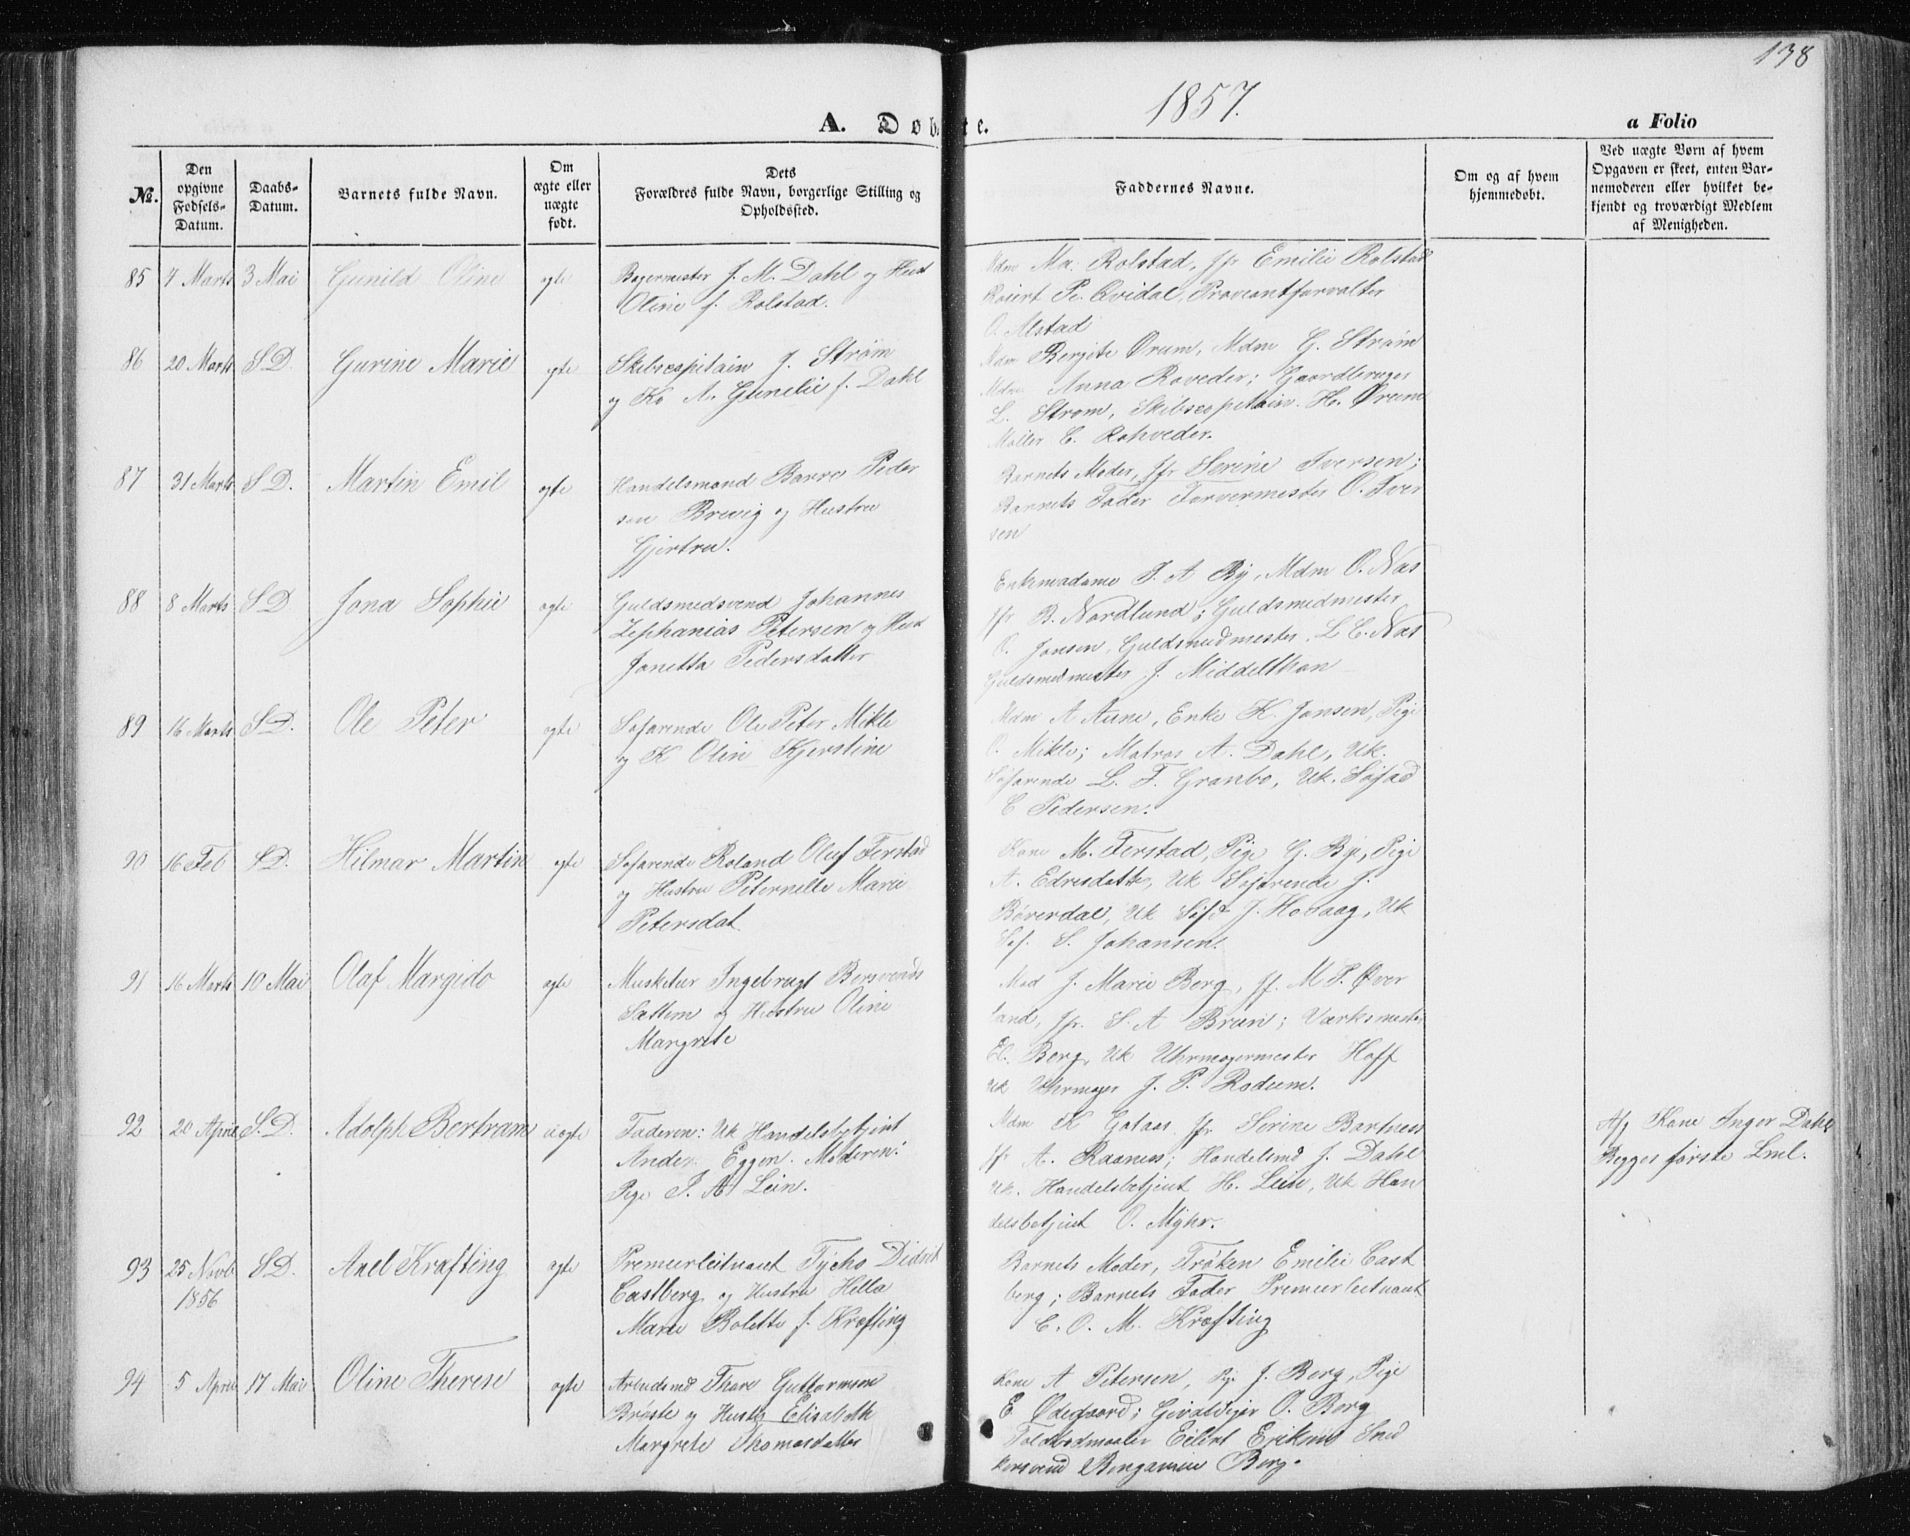 138
1857.
A. Døbte.
a Folio
№.
Den opgivne Fødsels-Datum.
Daabs-Datum.
Barnets fulde Navn.
Om ægte eller uægte født.
Dets Forældres fulde Navn, borgerlige Stilling og Opholdssted.
Faddernes Navne.
Om og af hvem hjemmedøbt.
Ved uægte Børn af hvem Opgaven er skeet, enten Barnemoderen eller hvilket bekjendt og troværdigt Medlem af Menigheden.
85 7 Marts 3 Mai Gunild Oline ægte
Bagermester J. M. Dahl og Hust
Oline f. Rolstad.
Mdm Ma. Rolstad, Jfr Emilie Rolstad
Pe. Qvidal, Proviantforvalter
O. Alstad
86 20 Marts S.D. Gurine Marie ægte
Skibscapitain J. Strøm
og Ko A. Gunelie f. Dahl
Mdm Bergite Ørum, Mdm G. Strøm
Mdm Anna Roveder; Gaardbruger
L. Strøm, Skibscapitain H. Ørum
Møller C. Rohveder.
87 31 Marts S.D. Martin Emil ægte
Handelsmand Barro Peder
sen Brevig og Hustru
Gjertru.
Barnets Moder, Jfr Serine Iversen;
Barnets Fader Farvermester O. Iver
sen
88 8 Marts S.D. Jona Sophie ægte
Guldsmedsvend Johannes
Zephanias Petersen og Hust
Janetta Pedersdatter
Enkemadame T. A By, Mdm O. Næs
Jfr B. Nordlund; Guldsmedmester
O. Jansen, Guldsmedmester L C. Næs
Guldsmedmester J. Middelthon
89 16 Marts S.D. Ole Peter ægte
Søfarende Ole Peter Mikle
og K Olin Kjerstine
Mdm A Aune, Enke K. Jansen, Pige
O. Mikle; Matros A. Dahl, Uk.
Søfarende L. F. Granbo, Uk. Søfad
C Pedersen.
90 16 Feb S.D. Hilmar Martin ægte
Søfarende Roland Oluf Ferstad
og Hustru Peternille Marie
Petersdat
Kone M. Ferstad, Pige G. By, Pige
A. Edresdatte, Uk Søfarende J.
Bøverdal, Uk Søf J. Hovaag, Uk
Søf. S. Johansen.
91 16 Marts 10 Mai Olaf Margido ægte
Musketer Ingebrigt Bersvends
Sættem og Hustru Oline
Margrete
Mad J. Marie Berg, Jf. M P. Øver
land, Jfr. S. A Bruun; Værksmester
El. Berg, Uk Uhrmagermester Hoff
uk Uhrmager J. P. Rodum.
92 20 April S.D. Adolph Bertram uægte
Faderen: Uk Handelsbetjent
Ander Eggen. Moderen:
Pige J. A. Lein.
Mdm K Gataas Jfr Serine Bartness
Jfr A. Raanes; Handelsmd J. Dahl
Uk. Handelsbetjent H. Lein, Uk Han
delsbetjent O. Myhr.
Af Kone Inger Dahl
Begges første Lml.
93 25 Novb S.D. Axel Krafting ægte
1856
Premierleitnant Tycho Didrik
Castberg og Hustru Hella
Marie Bolette f. Krefting
Barnets Moder, Frøken Emilie Cast
berg; Barnets Fader Premierleitnant
C. O. M. Krefting
94 5 April 17 Mai Oline Therese ægte
Arbeidsmd Thore Guttormsen
Brøste og Hustr Elisabeth
Margrete Thomasdatter
Kone A Petersen, Pig J. Berg, Pige
E Ødegaard; O. Berg
Toldbodmaaler Eilert Eriksen Sned
kersvend Bengamin Berg.